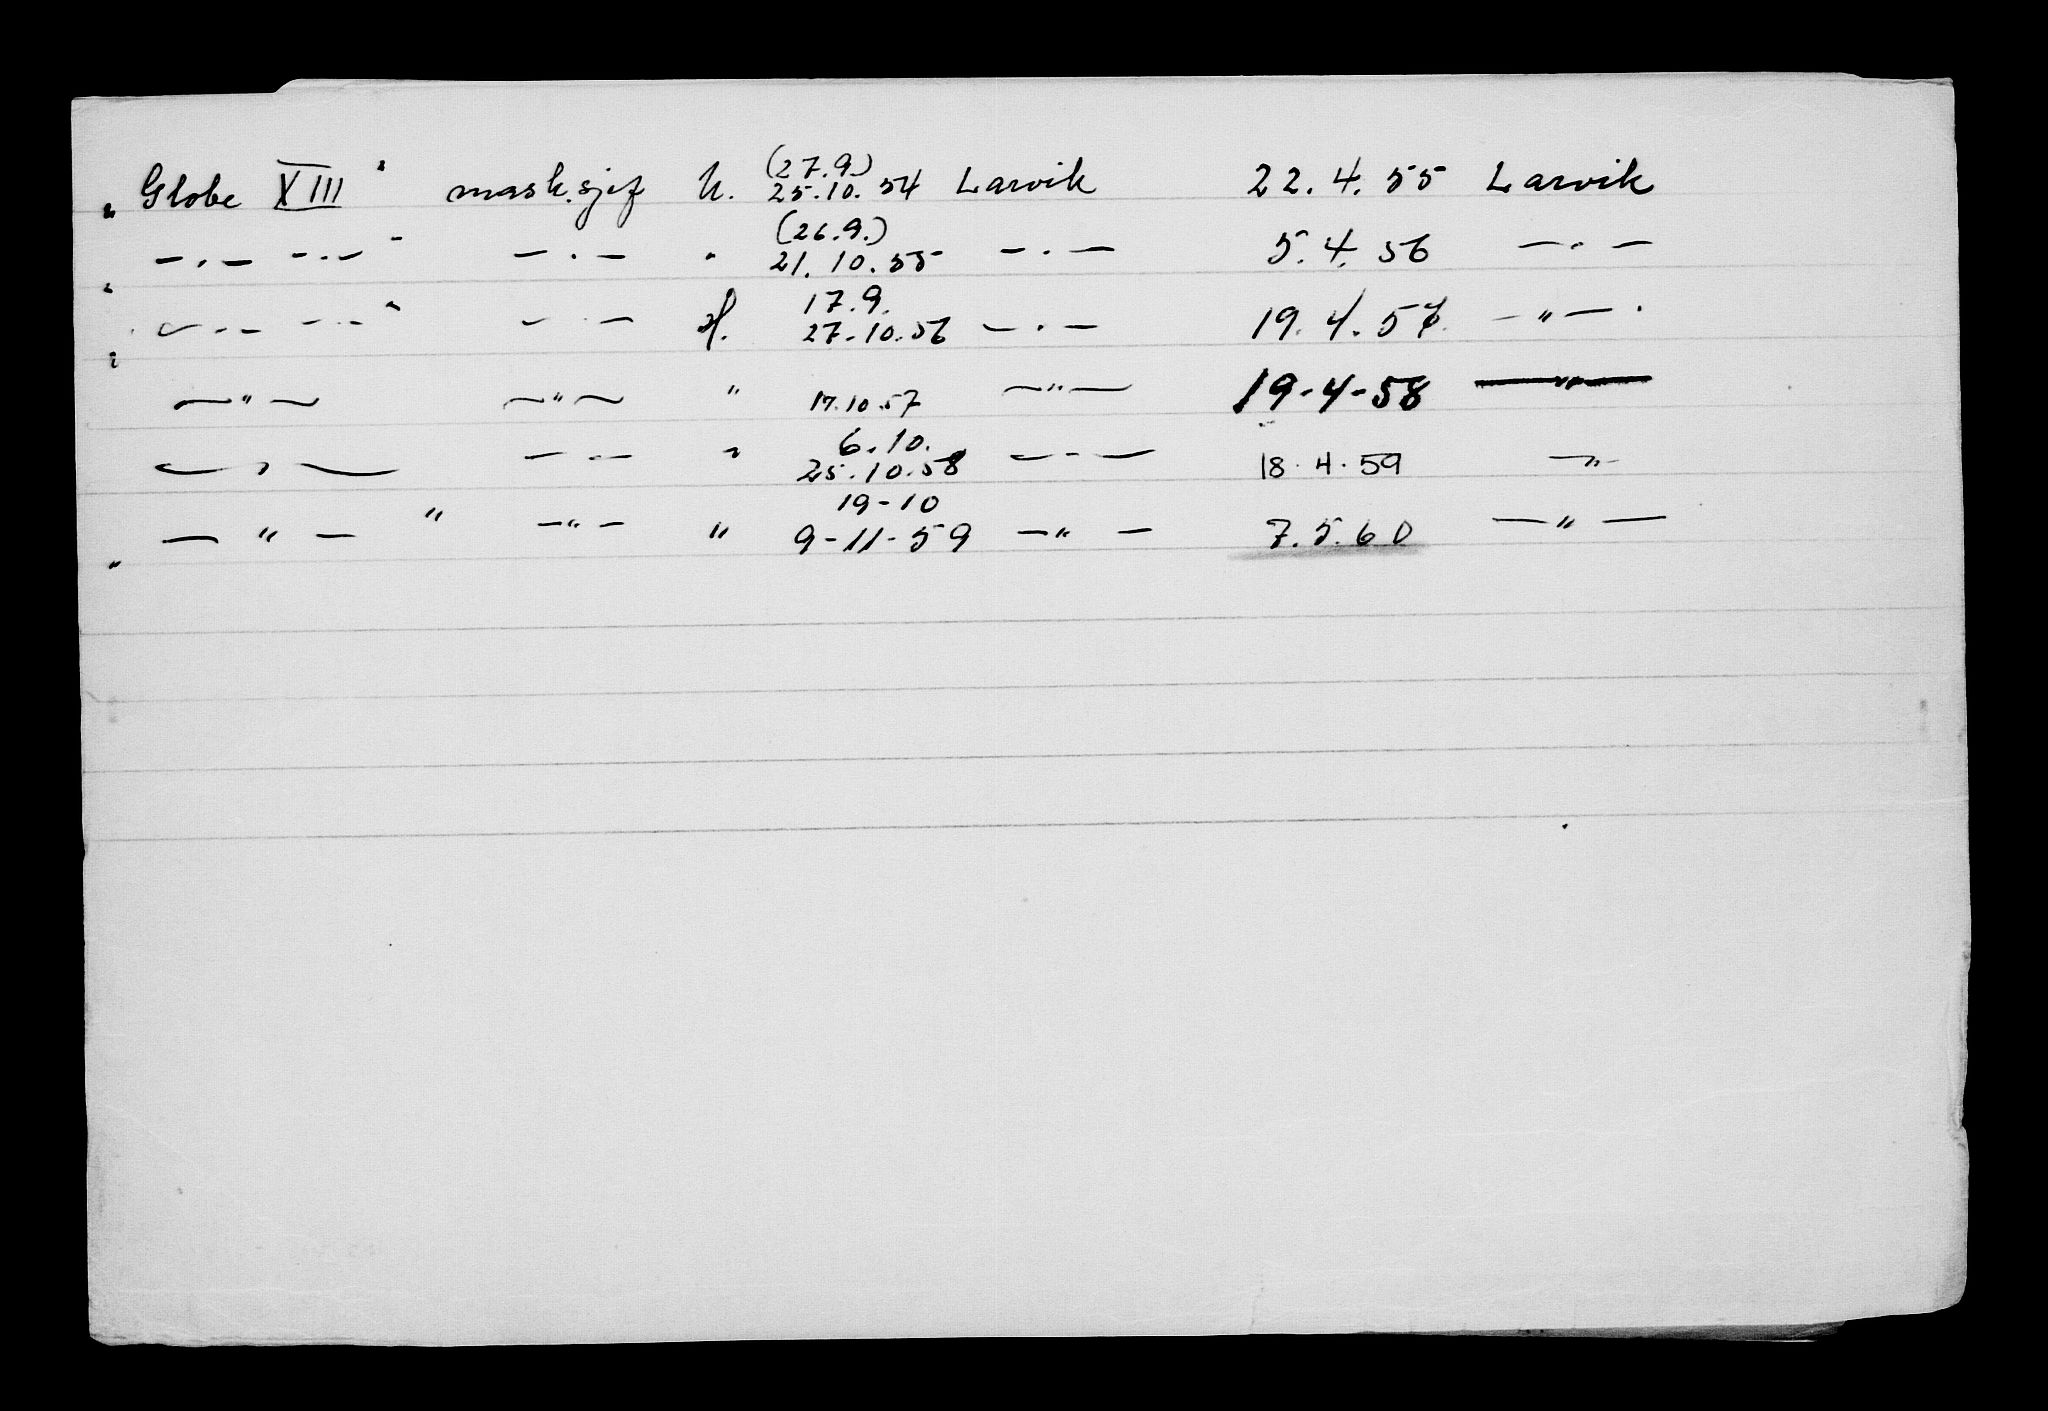 „Globe XIII" mask.sjef U. (27.9.) 25.10.54 Larvik 22.4.55 Larvik
„ — " — — " — " — " — " (26.9.) 21.10.55 — " — 5.4.56 — " —
„ — " — — " — " — " — 17.9. 27.10.56 — " — 19.4.57 — " —
— " — — " — " 17.10.57 — " — 19-4-58 — " —
— " — — " — " 6.10. 25.10.58 — " — 18.4.59 — " —
„ — " — " — " — " 19-10 9-11-59 — " — 7.5.60 — " —